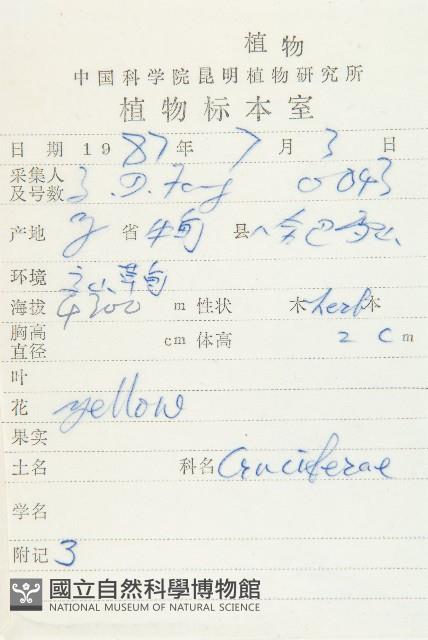 植物
中国科学院昆明植物研究所
植物标本室
日期 1987年 7月 3日
采集人及号数 Z.D. Fang 0043
产地 省 中甸 县 哈巴雪山
环境 高山草甸
海拔 4300 m 性状 木 herb 本
胸高直径 cm 体高 2 cm
叶
花 yellow
果实
土名 科名 Cruciferae
学名
附记 3
國立自然科學博物館
NATIONAL MUSEUM OF NATURAL SCIENCE